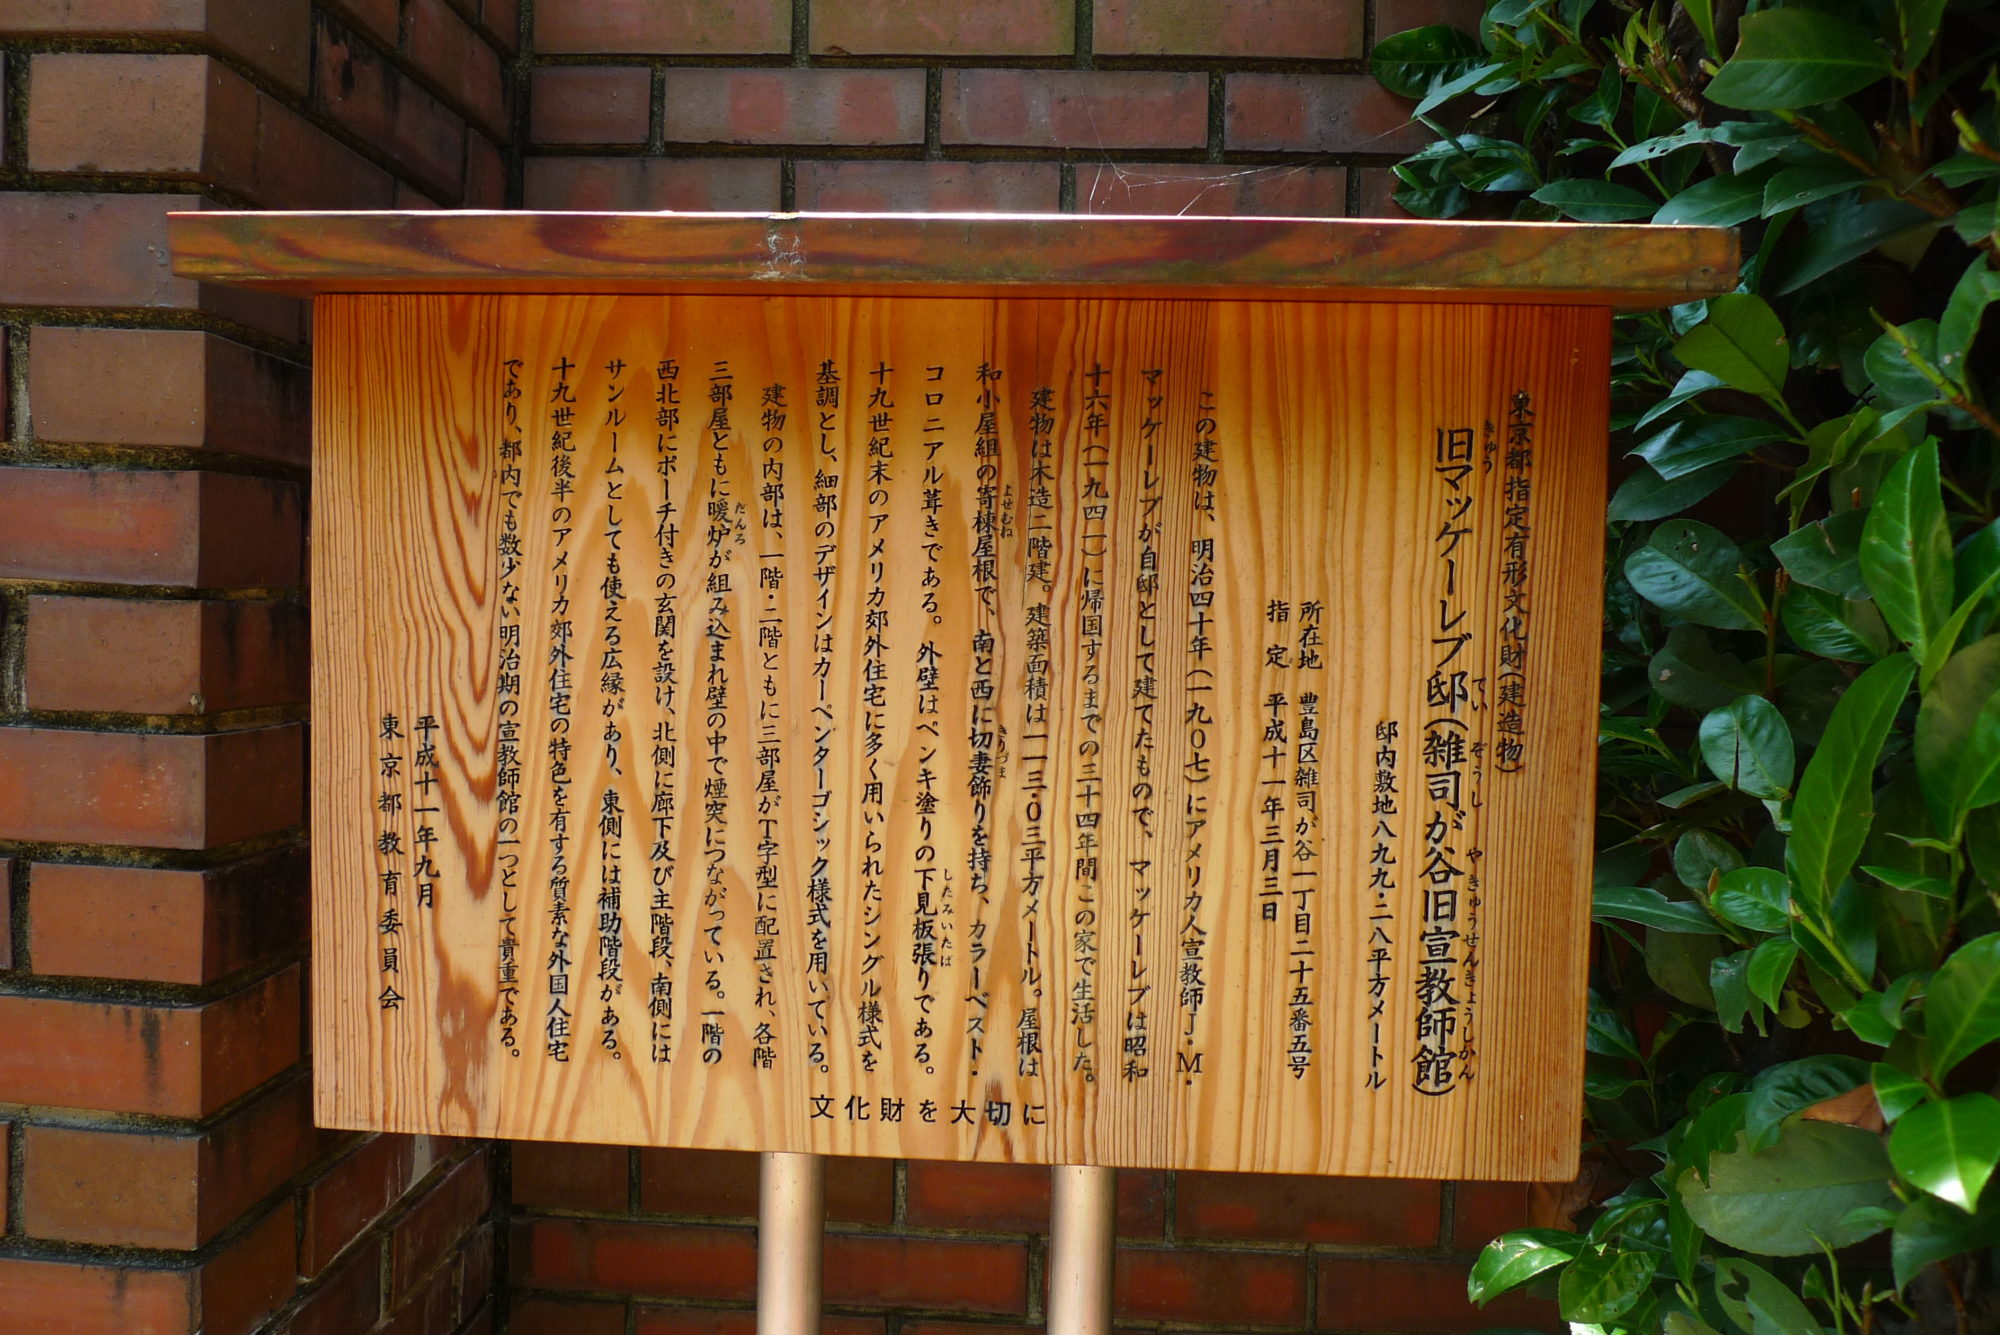 東京都指定有形文化財(建造物)
旧マッケーレブ邸(雑司が谷旧宣教師館)
きゅう てい ぞうし やきゅうせんきょうしかん
邸内敷地八九九・二八平方メートル
所在地 豊島区雑司が谷一丁目二十五番五号
指定 平成十一年三月三日
この建物は、明治四十年(一九〇七)にアメリカ人宣教師J・M・
マッケーレブが自邸として建てたもので、マッケーレブは昭和
十六年(一九四一)に帰国するまでの三十四年間この家で生活した。
建物は木造二階建。建築面積は一一三・〇三平方メートル。屋根は
和小屋組の寄棟屋根で、南と西に切妻飾りを持ち、カラーベスト・
よせむね きりづま
コロニアル葺きである。外壁はペンキ塗りの下見板張りである。
したみいたば
十九世紀末のアメリカ郊外住宅に多く用いられたシングル様式を
基調とし、細部のデザインはカーペンターゴシック様式を用いている。
建物の内部は、一階・二階ともに三部屋がT字型に配置され、各階
三部屋ともに暖炉が組み込まれ壁の中で煙突につながっている。一階の
だんろ
西北部にポーチ付きの玄関を設け、北側に廊下及び主階段、南側には
サンルームとしても使える広縁があり、東側には補助階段がある。
十九世紀後半のアメリカ郊外住宅の特色を有する質素な外国人住宅
であり、都内でも数少ない明治期の宣教師館の一つとして貴重である。
平成十一年九月
東京都教育委員会
文化財を大切に